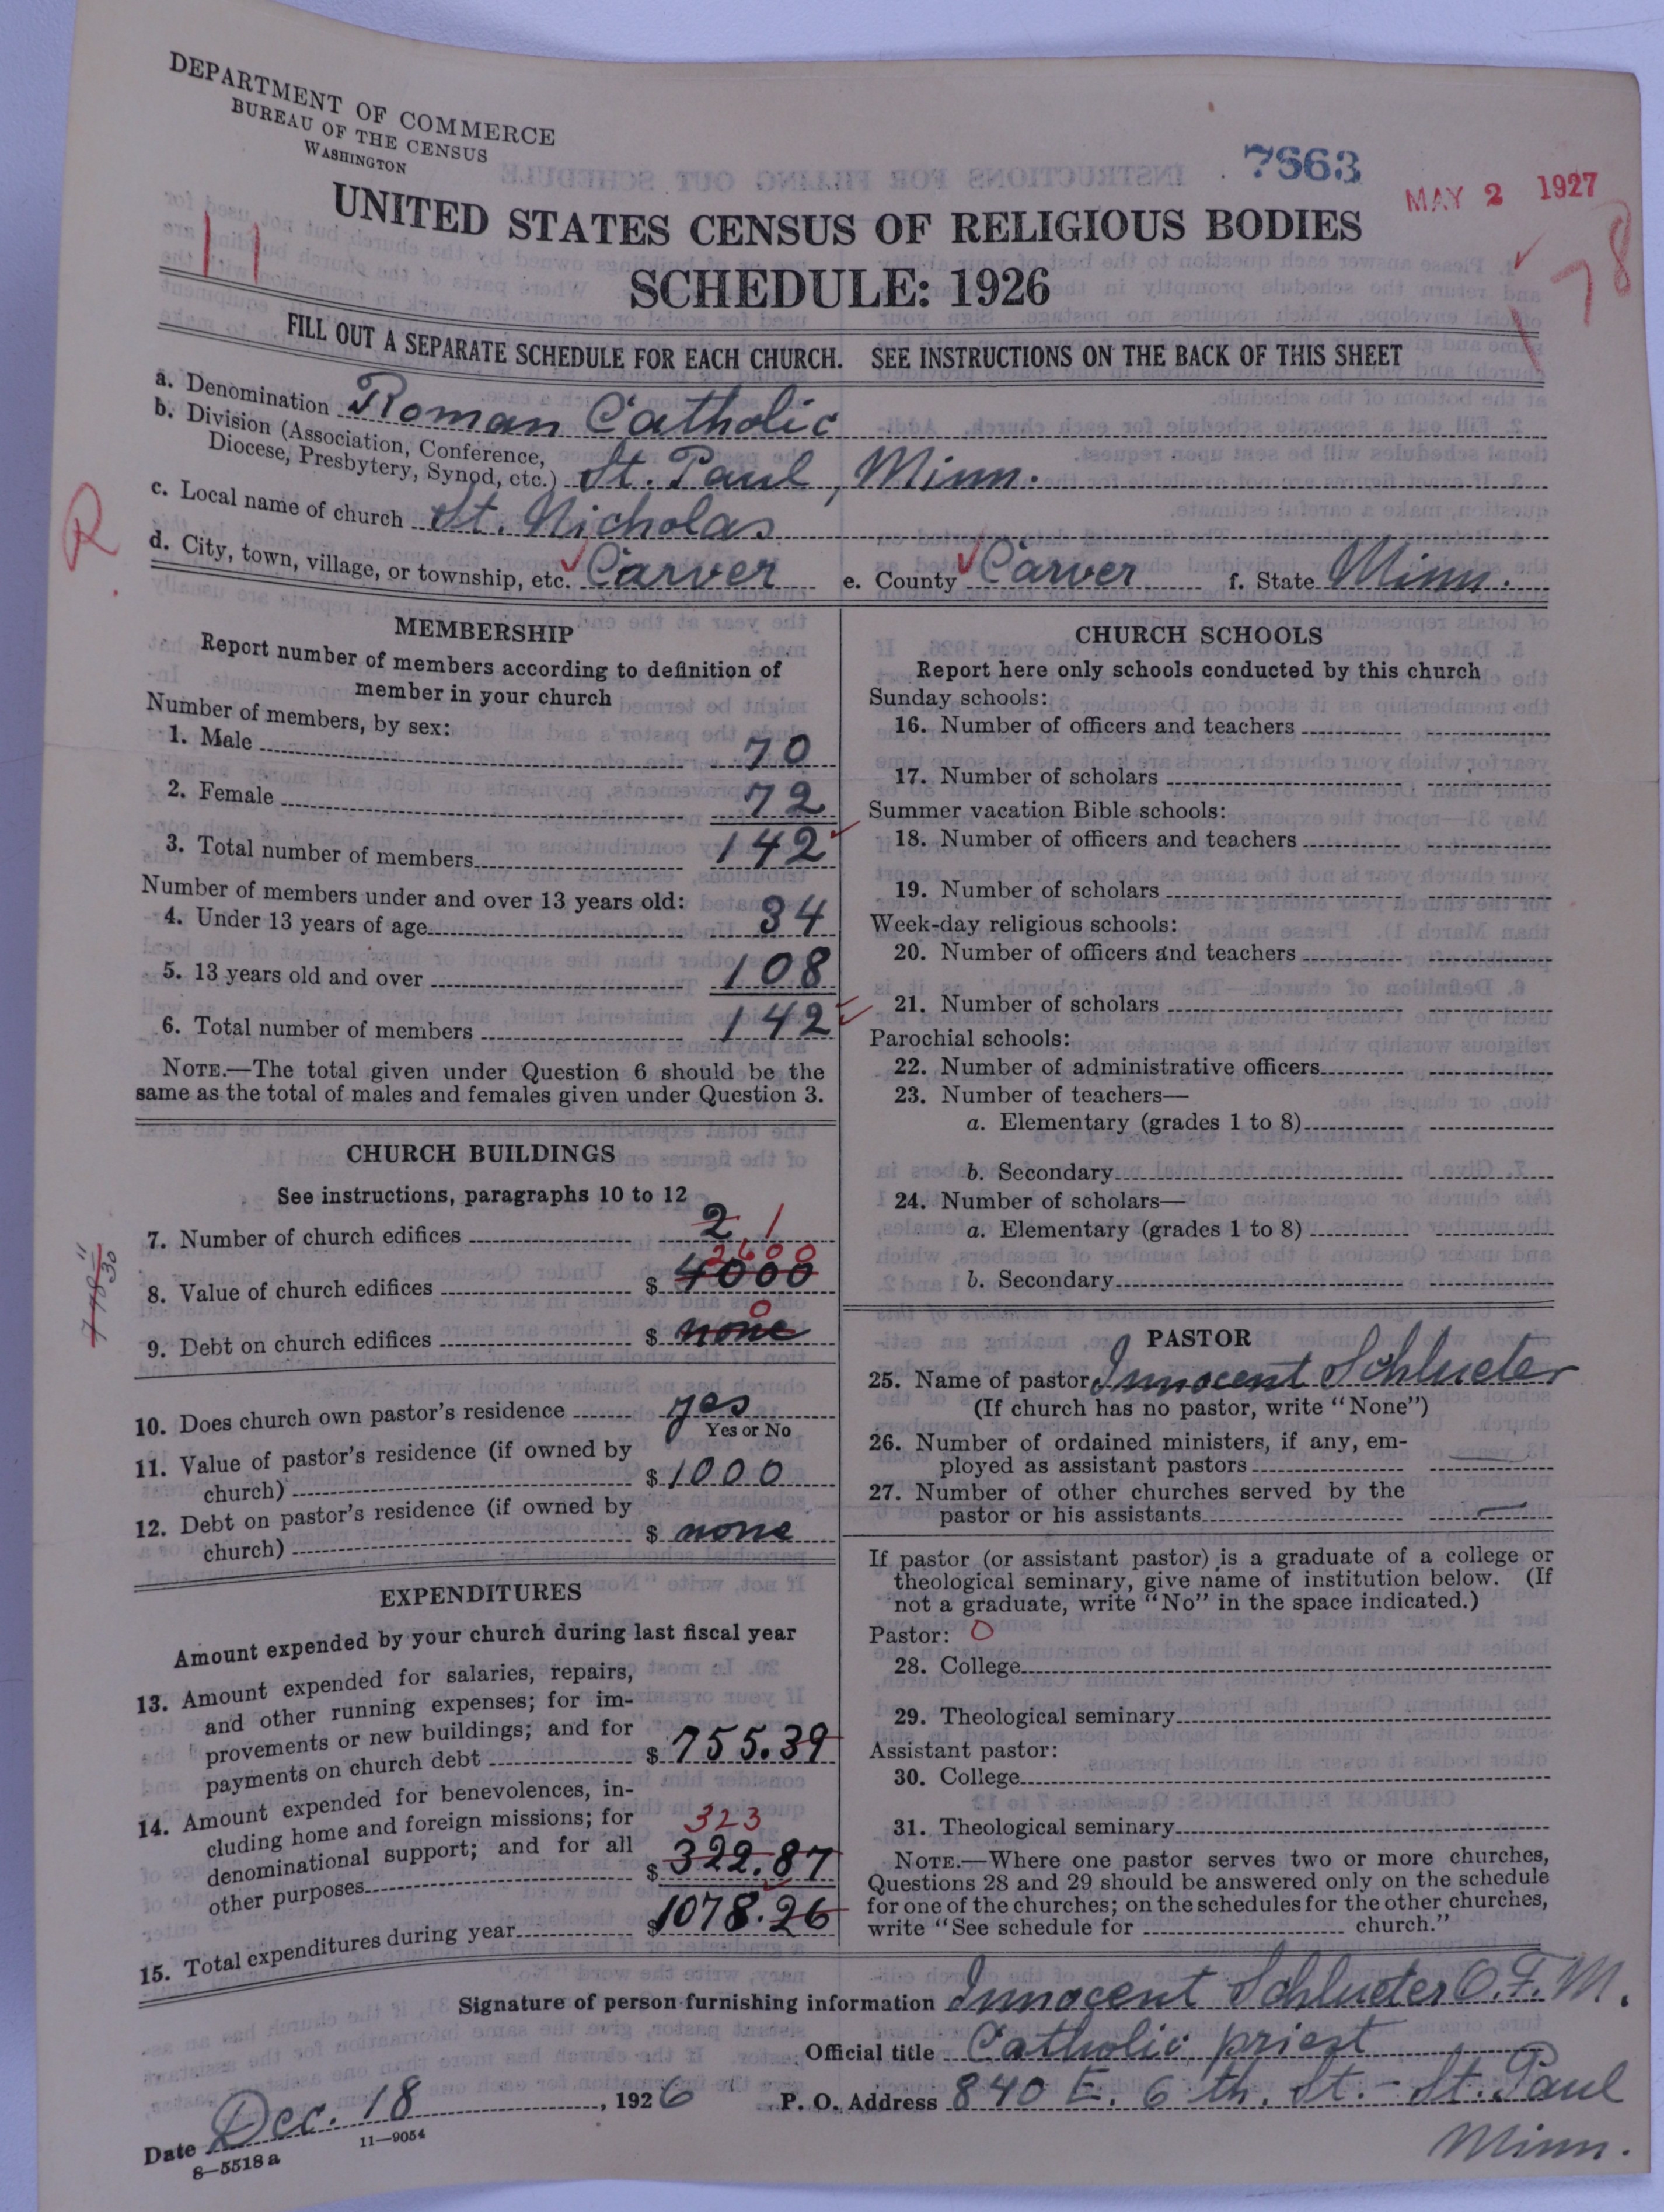 DEPARTMENT OF COMMERCE
BUREAU OF THE CENSUS
WASHINGTON
7563
MAY 2 1927
UNITED STATES CENSUS OF RELIGIOUS BODIES
11
78
SCHEDULE: 1926
FILL OUT A SEPARATE SCHEDULE FOR EACH CHURCH. SEE INSTRUCTIONS ON THE BACK OF THIS SHEET
a. Denomination Roman Catholic
b. Division (Association, Conference,
Diocese, Presbytery, Synod, etc.) St. Paul, Minn.
c. Local name of church St. Nicholas
R
d. City, town, village, or township, etc. Carver e. County Carver f. State Minn.
MEMBERSHIP
Report number of members according to definition of
member in your church
Number of members, by sex:
1. Male 70
2. Female 72
3. Total number of members 142
Number of members under and over 13 years old:
4. Under 13 years of age 34
5. 13 years old and over 108
6. Total number of members 142
NOTE.—The total given under Question 6 should be the
same as the total of males and females given under Question 3.
CHURCH BUILDINGS
See instructions, paragraphs 10 to 12
7. Number of church edifices 2 1
2600
8. Value of church edifices $ 4000
0
9. Debt on church edifices $ none
10. Does church own pastor's residence yes
Yes or No
11. Value of pastor's residence (if owned by
church) $ 1000
12. Debt on pastor's residence (if owned by
church) $ none
EXPENDITURES
Amount expended by your church during last fiscal year
13. Amount expended for salaries, repairs,
and other running expenses; for im-
provements or new buildings; and for
payments on church debt $ 755.39
14. Amount expended for benevolences, in-
cluding home and foreign missions; for 323
denominational support; and for all
other purposes $ 322.87
15. Total expenditures during year $ 1078.26
CHURCH SCHOOLS
Report here only schools conducted by this church
Sunday schools:
16. Number of officers and teachers
17. Number of scholars
Summer vacation Bible schools:
18. Number of officers and teachers
19. Number of scholars
Week-day religious schools:
20. Number of officers and teachers
21. Number of scholars
Parochial schools:
22. Number of administrative officers
23. Number of teachers—
a. Elementary (grades 1 to 8)
b. Secondary
24. Number of scholars—
a. Elementary (grades 1 to 8)
b. Secondary
PASTOR
25. Name of pastor Innocent Schlueter
(If church has no pastor, write "None")
26. Number of ordained ministers, if any, em-
ployed as assistant pastors
27. Number of other churches served by the
pastor or his assistants —
If pastor (or assistant pastor) is a graduate of a college or
theological seminary, give name of institution below. (If
not a graduate, write "No" in the space indicated.)
Pastor: 0
28. College
29. Theological seminary
Assistant pastor:
30. College
31. Theological seminary
NOTE.—Where one pastor serves two or more churches,
Questions 28 and 29 should be answered only on the schedule
for one of the churches; on the schedules for the other churches,
write "See schedule for church."
Signature of person furnishing information Innocent Schlueter O.F.M.
Official title Catholic priest
Date Dec. 18, 1926 P. O. Address 840 E. 6th. St. - St. Paul
Minn.
11—9054
8—5518 a